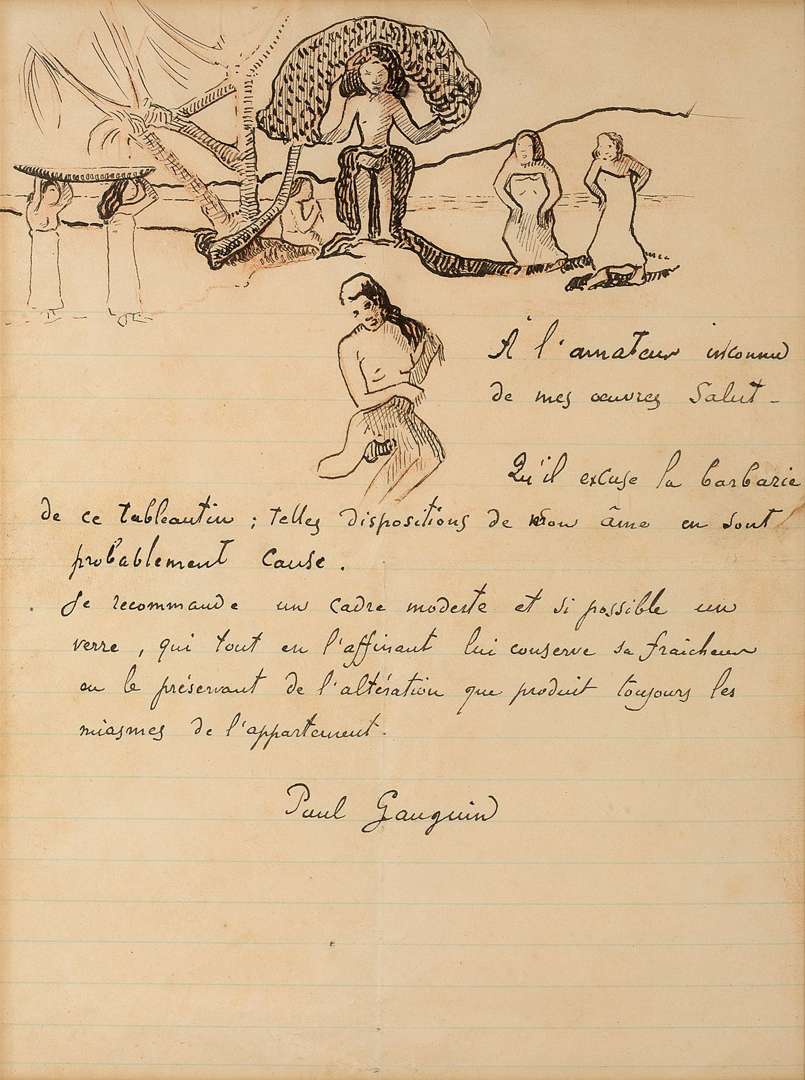 À l'amateur inconnu
de mes œuvres Salut -
Qu'il excuse la barbarie
de ce tableautin ; telles dispositions de mon âme en sont
probablement cause .
Je recommande un cadre modeste et si possible un
verre , qui tout en l'affinant lui conserve sa fraicheur
en le préservant de l'altération que produit toujours les
miasmes de l'appartement .
Paul Gauguin